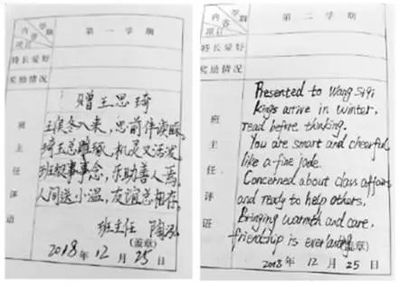 学期
内容
项目
第一学期
特长爱好
奖励情况
班主任评语
赠王思琦
王侯冬入来，思前伴读
琦玉总雕琢，机灵又活泼
班级事事念，乐助善人焉，
人间送小温，友谊总相存。
班主任 陶
（盖章）
2018年12月25日
学期
内容
项目
第二学期
特长爱好
奖励情况
班主任评语
Presented to Wang Siqi
Kings arrive in winter,
read before thinking.
You are smart and cheerful,
like a fine jade.
Concerned about class affairs
and ready to help others,
Bringing warmth and care,
friendship is everlasting.
（盖章）
2018年12月25日